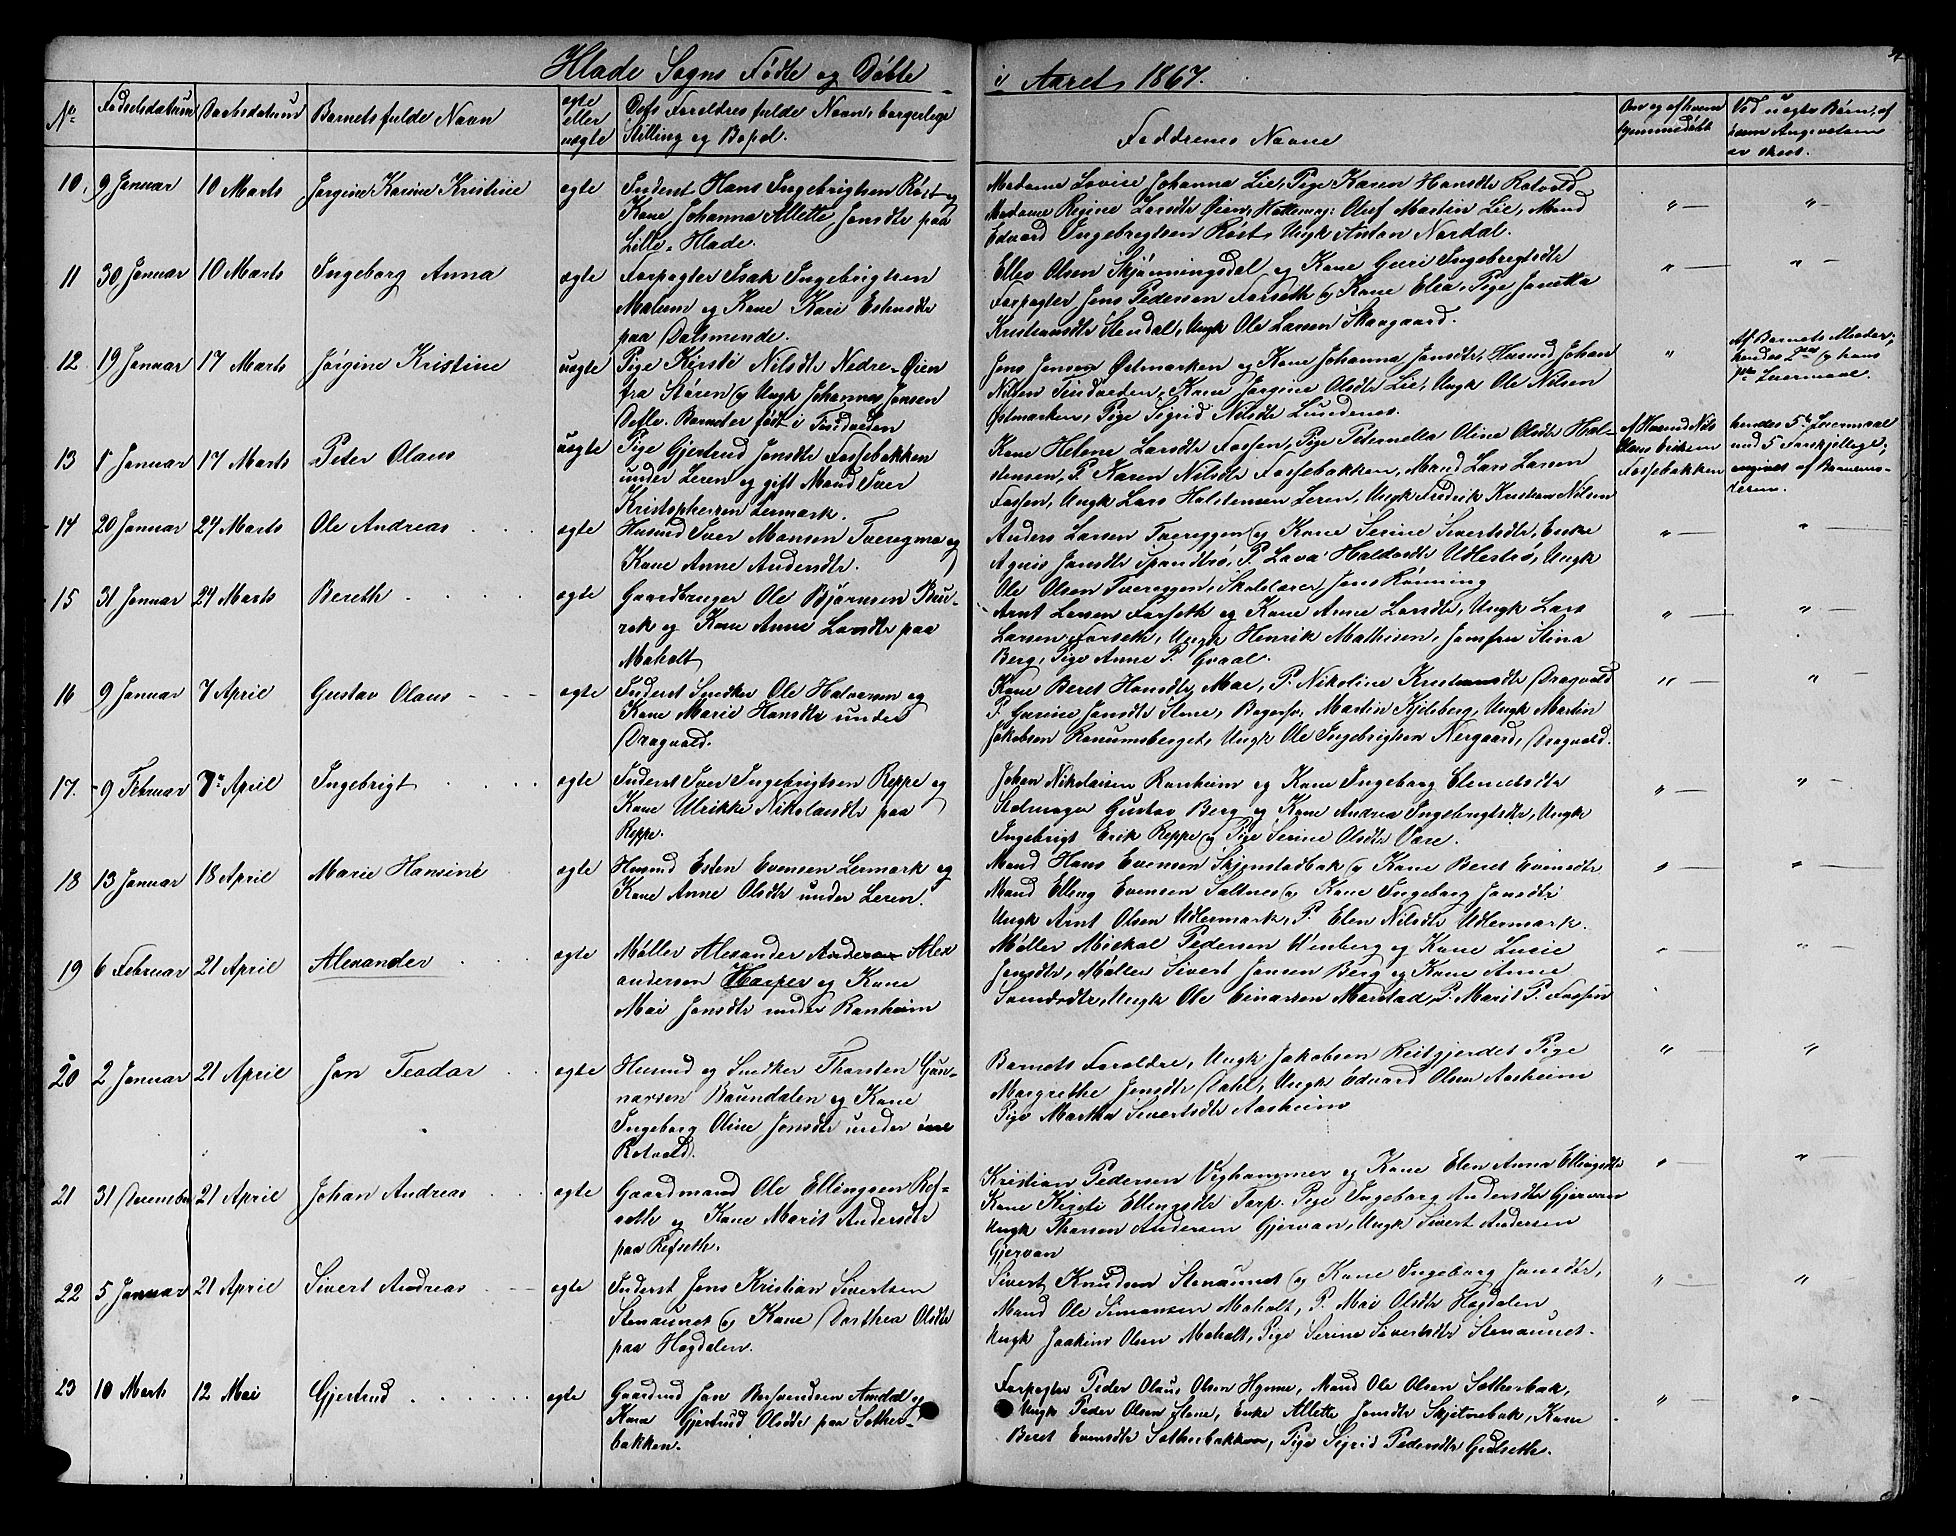 Hlade Sogns Fødte og Døbte i Aaret 1867.
No Fødselsdatum Daabsdatum Barnets fulde Navn ægte eller uægte Dets Forældres fulde Navn, borgerlige Stilling og Bopæl. Faddrenes Navne Om og af hvem hjemmedøbt Ved uægte Børn, af hvem Angivelsen er skeet.
10. 9 Januar 10 Marts Jørgine Karine Kristine ægte Inderst Hans Ingebrigtsen Røst og
Kone Johanna Allette Jensdtr paa
Lille-Hlade.
Madame Lovise Johanna Lie, Pige Karen Hansdtr Rotvold
Madame Regine Larsdtr Øien, Hattemag: Oluf Martin Lie, Mand
Edvard Ingebrigtsen Røst, Ungk Anton Nordal.
" "
11 30 Januar 10 Marts Ingeborg Anna ægte Forpagter Isak Ingebrigtsen
Malum og Kone Kari Estensdtr
paa Dalsminde.
Ellev Olsen Skjønningsdal og Kone Guri Ingebrigtsdtr
Forpagter Jens Pedersen Forseth og Kone Elia, Pige Janetta
Kristiansdtr Stendal, Ungk Ole Larsen Skaugaard.
" "
12 19 Januar 17 Marts Jørgine Kristine uægte Pige Kirsti Nilsdtr Nedre-Øien
fra Støren og Ungk Johannes Jonsen
Defle. Barnet er født i Tusdveden
Jens Jensen Østmarken og Kone Johanna Jensdtr, Husmd Johan
Nilsen Tusdveden, Kone Jørgine Olsdtr Lie, Ungk Ole Nilsen
Østmarken, Pige Sigrid Nilsdtr Lundenes.
" Af Barnets Moder;
hendes 2det og hans
1ste Leiermaal.
13 1 Januar 17 Marts Peter Olaus uægte Pige Gjertrud Jensdtr Fossebakken
under Leren og gift Mand Iver
Kristophersen Lermark.
Kone Helene Larsdtr Fossen, Pige Peternella Oline Olsdtr Hal-
stensen, P. Karen Nilsdtr Fossebakken, Mand Lars Larsen
Fossen, Ungk Lars Halstensen Leren, Ungk Fredrik Kristian Nilsen
af Husmd Nils
Fossebakken
hendes 5te Leiermaal
med 5 forskjellige;
angivet af Barnemo-
deren.
14 20 Januar 24 Marts Ole Andreas ægte Husmd Iver Monsen Tveregma og
Kone Anne Andersdtr.
Anders Larsen Tvereggen og Kone Serine Sivertsdtr, Enke
Agnis Jonsdtr Spandtrø, P. Lava Haldosdtr Udlestrø, Ungk
Ole Olsen Tvereggen, Skolelærer Jens Rønning
" "
15 31 Januar 24 Marts Bereth ægte Gaardbruger Ole Bjørnsen Bru-
rok og Kone Anne Larsdtr paa
Moholt
Arnt Larsen Forseth og Kone Anne Larsdtr, Ungk Lars
Larsen Forseth, Ungk Henrik Mathisen, Jomfru Stina
Berg, Pige Anne P. Graal.
" "
16 9 Januar 7 April Gustav Olaus ægte Inderst Snedker Ole Halvorsen og
Kone Marie Hansdtr under
Dragvold.
Kone Beret Hansdtr Moe, P. Nikoline Kristiansdtr Dragvold
P. Gurine Jonsdtr Stene, Bagersv. Martin Kjelsberg, Ungk Martin
Jakobsen Ranumsberget, Ungk Ole Ingebrigtsen Nergaard, Dragvold.
" "
17. 9 Februar 7de April Ingebrigt ægte Inderst Iver Ingebrigtsen Reppe og
Kone Ulrikke Nikolaisdtr paa
Reppe.
Johan Nikolaisen Ranheim og Kone Ingeborg Elmedsdtr
Stolmager Gustav Berg og Kone Andrea Ingebrigtsdtr, Ungk
Ingebrigt Erik Reppe og Pige Serine Olsdtr Være.
" "
18 13 Januar 18 April Marie Hansine ægte Husmd Esten Evensen Lermark og
Kone Anne Olsdtr under Leren.
Mand Hans Evensen Skjenstadbak og Kone Beret Evensdtr
Mand Elling Evensen Saltnes og Kone Ingeborg Jonsdtr
Ungk Arnt Olsen Udlermark, P. Elen Nilsdtr Udlermark.
" "
19 6 Februar 21 April Alexander ægte Møller Alexander Anderson Alex
anderson Harper og Kone
Mai Jonsdtr under Ranheim
Møller Mickal Pedersen Venberg og Kone Lusie
Jonsdtr, Møller Sivert Jonsen Berg og Kone Anne
Simensdtr, Ungk Ole Einarsen Marstad, P. Marit P. Fossen
" "
20 2 Januar 21 April Jon Teodor ægte Husmd og Snedker Thorsten Gun-
narsen Baundalen og Kone
Ingeborg Oline Jonsdtr under
Rotvold.
Barnets Forældre, Ungk Jakobsen Reitgjerdet Pige
Margrethe Jensdtr Dahl, Ungk Edvard Olsen Aasheim
Pige Martha Sivertsdtr Aasheim
" "
21 31 December 21 April Johan Andreas ægte Gaardmand Ole Ellingsen Ref-
seth og Kone Marit Andersdtr
paa Refseth.
Kristian Pedersen Vighammer og Kone Elen Anna Ellingsdtr
Kone Kirsti Ellingsdtr Torp. Pige Ingeborg Andersdtr Gjervan
Ungk Thomsen Andersen Gjervan, Ungk Sivert Andersen
Gjervan
" "
22 5 Januar 21 April Sivert Andreas ægte Inderst Jens Kristian Sivertsen
Stenaunet og Kone Dorthea Olsdtr
paa Hogdalen.
Sivert Knudsen Stenaunet og Kone Ingeborg Jonsdtr,
Mand Ole Simonsen Moholt, P. Mai Olsdtr Hogdalen
Ungk Joakim Olsen Moholt, Pige Serine Sivertsdtr Stenaunet.
" "
23 10 Marts 12 Mai Gjertrud ægte Gaardmd Jon Besvendsen Amdal og
Kone Gjertrud Olsdtr paa Sother-
bakken.
Forpagter Peder Olaus Olsen Hynne, Mand Ole Olsen Sotherbak,
Ungk Peder Olsen Stene, Enke Allette Jonsdtr Skjetnebak, Kone
Beret Evensdtr Sotherbakken, Pige Sigrid Pedersdtr Gjulseth.
" "